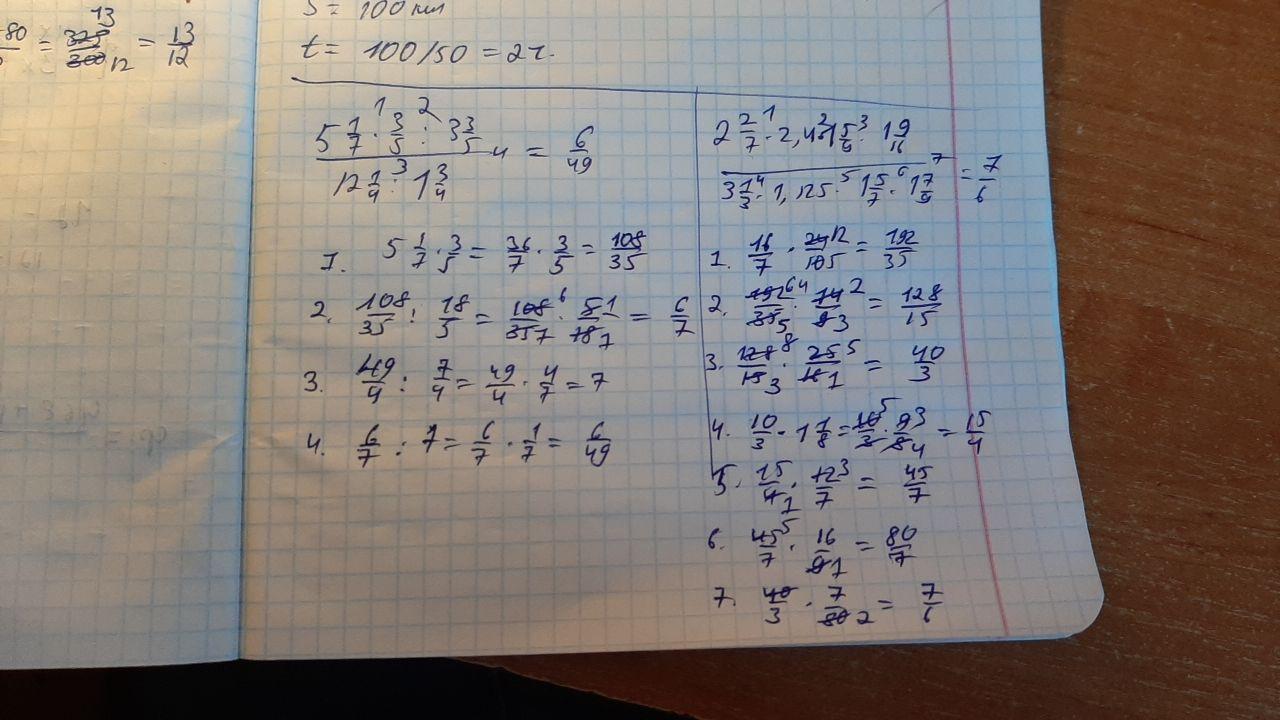 -80/5 = 325 13/300 12 = 13/12
S = 100 км
t = 100/50 = 2ч.
5 1/7 ·¹ 3/5 :² 3 3/5
12 1/4 :³ 1 3/4
4 = 6/49
1. 5 1/7 · 3/5 = 36/7 · 3/5 = 108/35
2. 108/35 : 18/5 = 108 6/35 7 · 5 1/18 1 = 6/7
3. 49/4 : 7/4 = 49/4 · 4/7 = 7
4. 6/7 : 7 = 6/7 · 1/7 = 6/49
2 2/7 ·¹ 2,4 ·² 1 5/9 ·³ 1 9/16
3 1/3 ·⁴ 1,125 ·⁵ 1 5/7 ·⁶ 1 7/9
7 = 7/6
1. 16/7 · 24 12/105 = 192/35
2. 192 64/35 5 · 14 2/9 3 = 128/15
3. 128 8/15 3 · 25 5/16 1 = 40/3
4. 10/3 · 1 1/8 = 10 5/3 · 9 3/8 4 = 15/4
5. 15/4 1 · 12 3/7 = 45/7
6. 45 5/7 · 16/9 1 = 80/7
7. 40/3 · 7/80 2 = 7/6